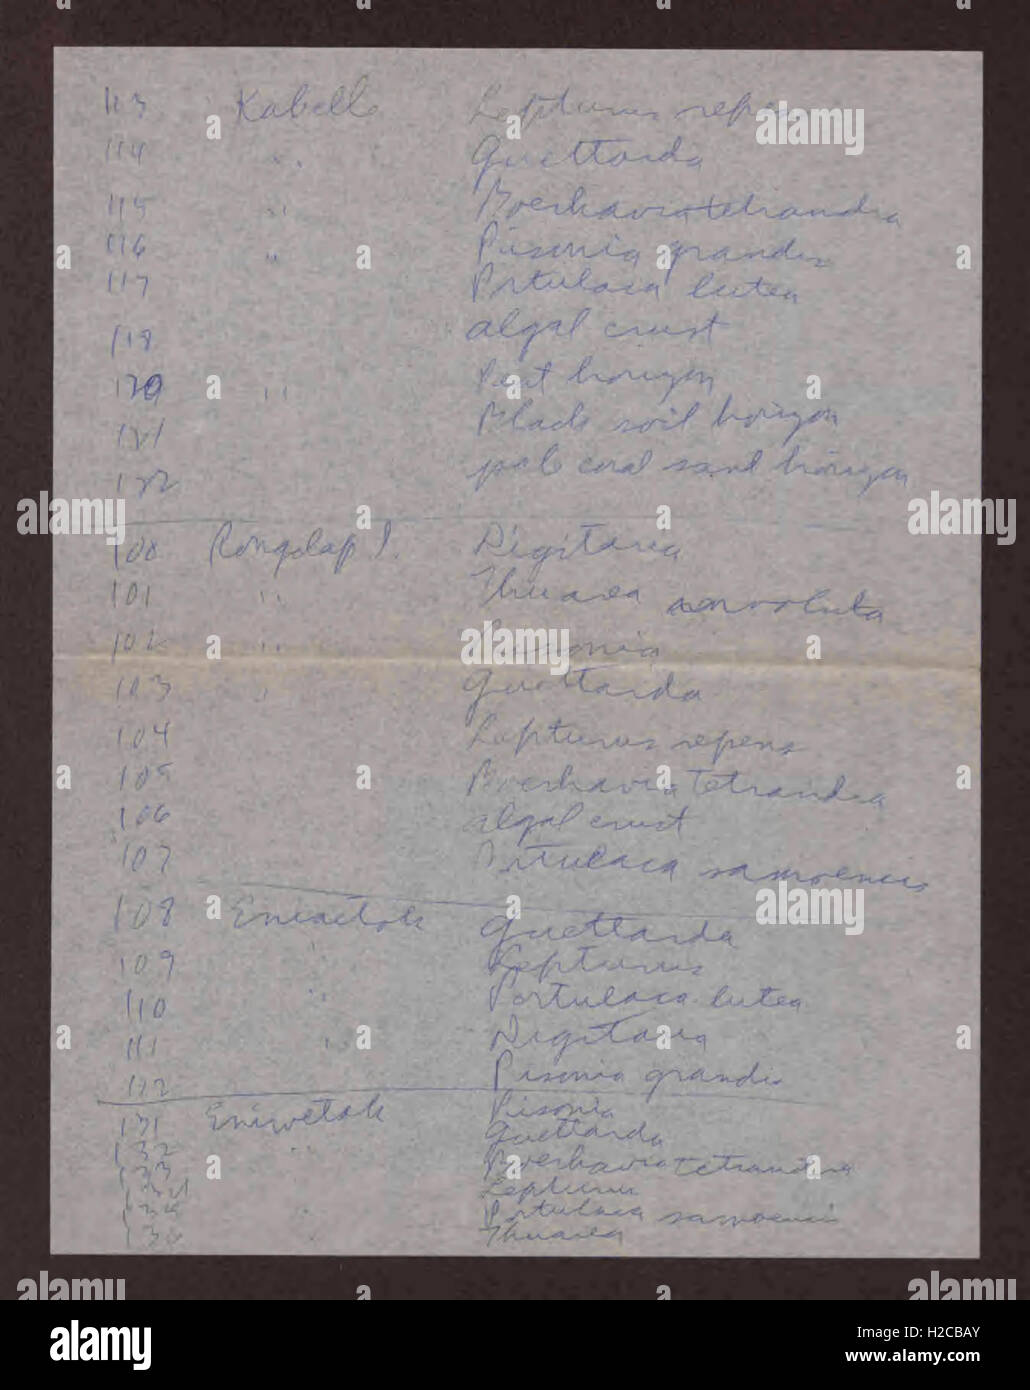 113 Kabelle Lepturus repens
114 " Guettarda
115 " Boerhavia tetrandra
116 " Pisonia grandis
117 Portulaca lutea
118 algal crust
120 " Peat horizon
121 Black soil horizon
122 pale coral sand horizon
100 Rongelap I. Digitaria
101 " Thuarea involuta
102 " Pisonia
103 " Guettarda
104 Lepturus repens
105 Boerhavia tetrandra
106 algal crust
107 Portulaca samoensis
108 Eniaetok Guettarda
109 " Lepturus
110 " Portulaca lutea
111 " Digitaria
112 Pisonia grandis
131 Eniwetak Pisonia
132 " Guettarda
133 Boerhavia tetrandra
134 Lepturus
135 " Portulaca samoensis
136 " Thuarea
alamy
Image ID: H2CBAY
www.alamy.com